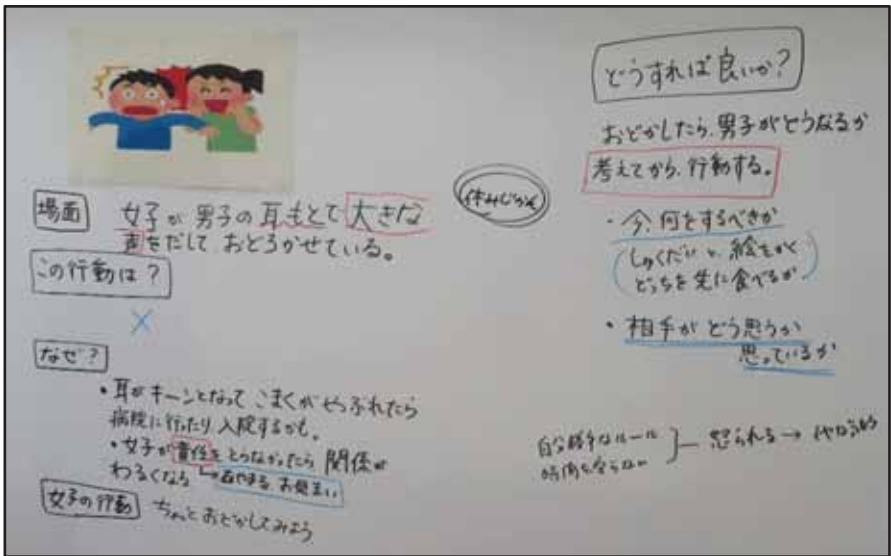 場面 女子が男子の耳もとで大きな
声をだして おどろかせている。
この行動は?
×
なぜ?
・耳がキーンとなって こまくがやぶれたら
病院に行ったり入院するかも。
・女子が責任をとらなかったら 関係が
わるくなる →あやまる、お見まい
女子の行動 ちょっとおどかしてみよう
休みじかん
どうすれば良いか?
おどかしたら、男子がどうなるか
考えてから、行動する。
・今、何をするべきか
(しゅくだいと、絵をかく
どっちを先に食べるか)
・相手がどう思うか
思っているか
自分勝手なルール
時間を守らない
怒られる→